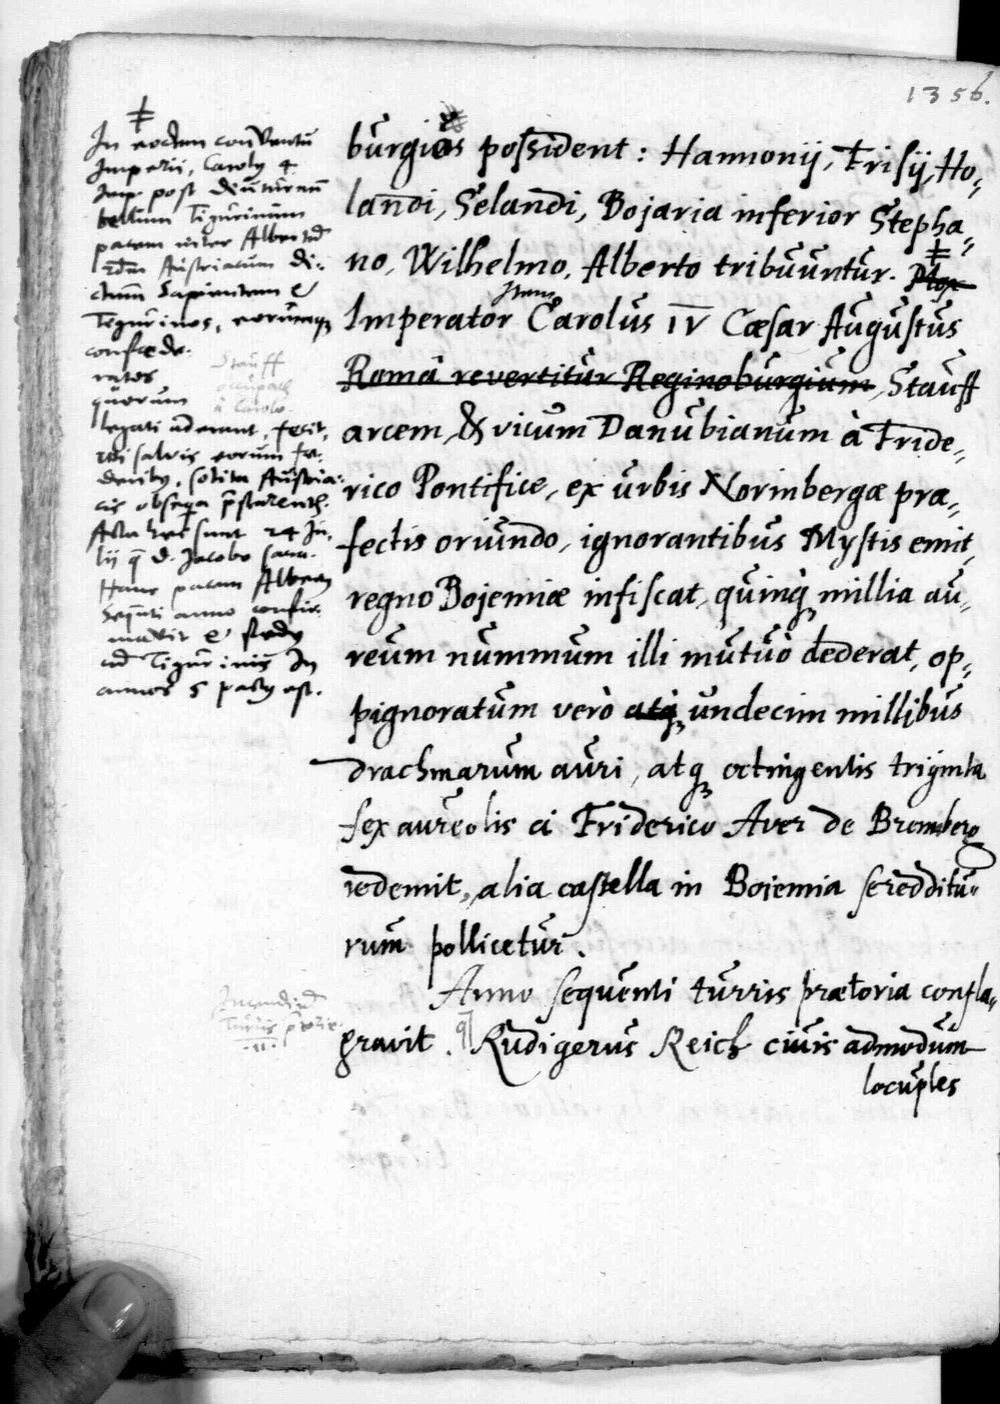 1356.
burgios possident : Hannonii, Frisii, Ho-
landi, Selandi, Bojaria inferior Stepha-
no, Wilhelmo, Alberto tribuuntur. ‡
Item
Imperator Carolus IV Cæsar Augustus
Româ revertitur Reginoburgium, Stauff
arcem, & vicum Danubianum à Fride-
rico Pontifice, ex urbis Norinbergæ præ-
fectis oriundo, ignorantibus Mystis emit,
regno Bojemiæ infiscat, quinq millia au-
reum nummum illi mutuò dederat, op-
pignoratum verò atq undecim millibus
drachmarum auri, atq octingentis triginta
sex aureolis a Friderico Aver de Bremberg
redemit, alia castella in Boiemia se redditu-
rum pollicetur.
Anno sequenti turris prætoria confla-
gravit. Rudigerus Reich civis admodum
locuples
‡
In eodem conventu
Imperii, Caroly 4
Imp. post diuturnū
bellum Tigurinum
pacem inter Albertū
Austriacum di-
ctum Sapientem &
Tigurinos, eorumq
confæde-
ratos
quorum
legati aderant, fecit,
ut salvis eorum fæ-
deriby, solita Austria-
cis obseqa p̄starent.
Acta hæc sunt 24 Ju-
lii q̄ d. Jacobo sacr.
Hanc pacem Albert9
sequēti anno confir-
mavit &
ad Tigurinis In
annos 5 pacty est.
Stauff
occupat
à Carolo.
Incendiū
Turris p̄torie